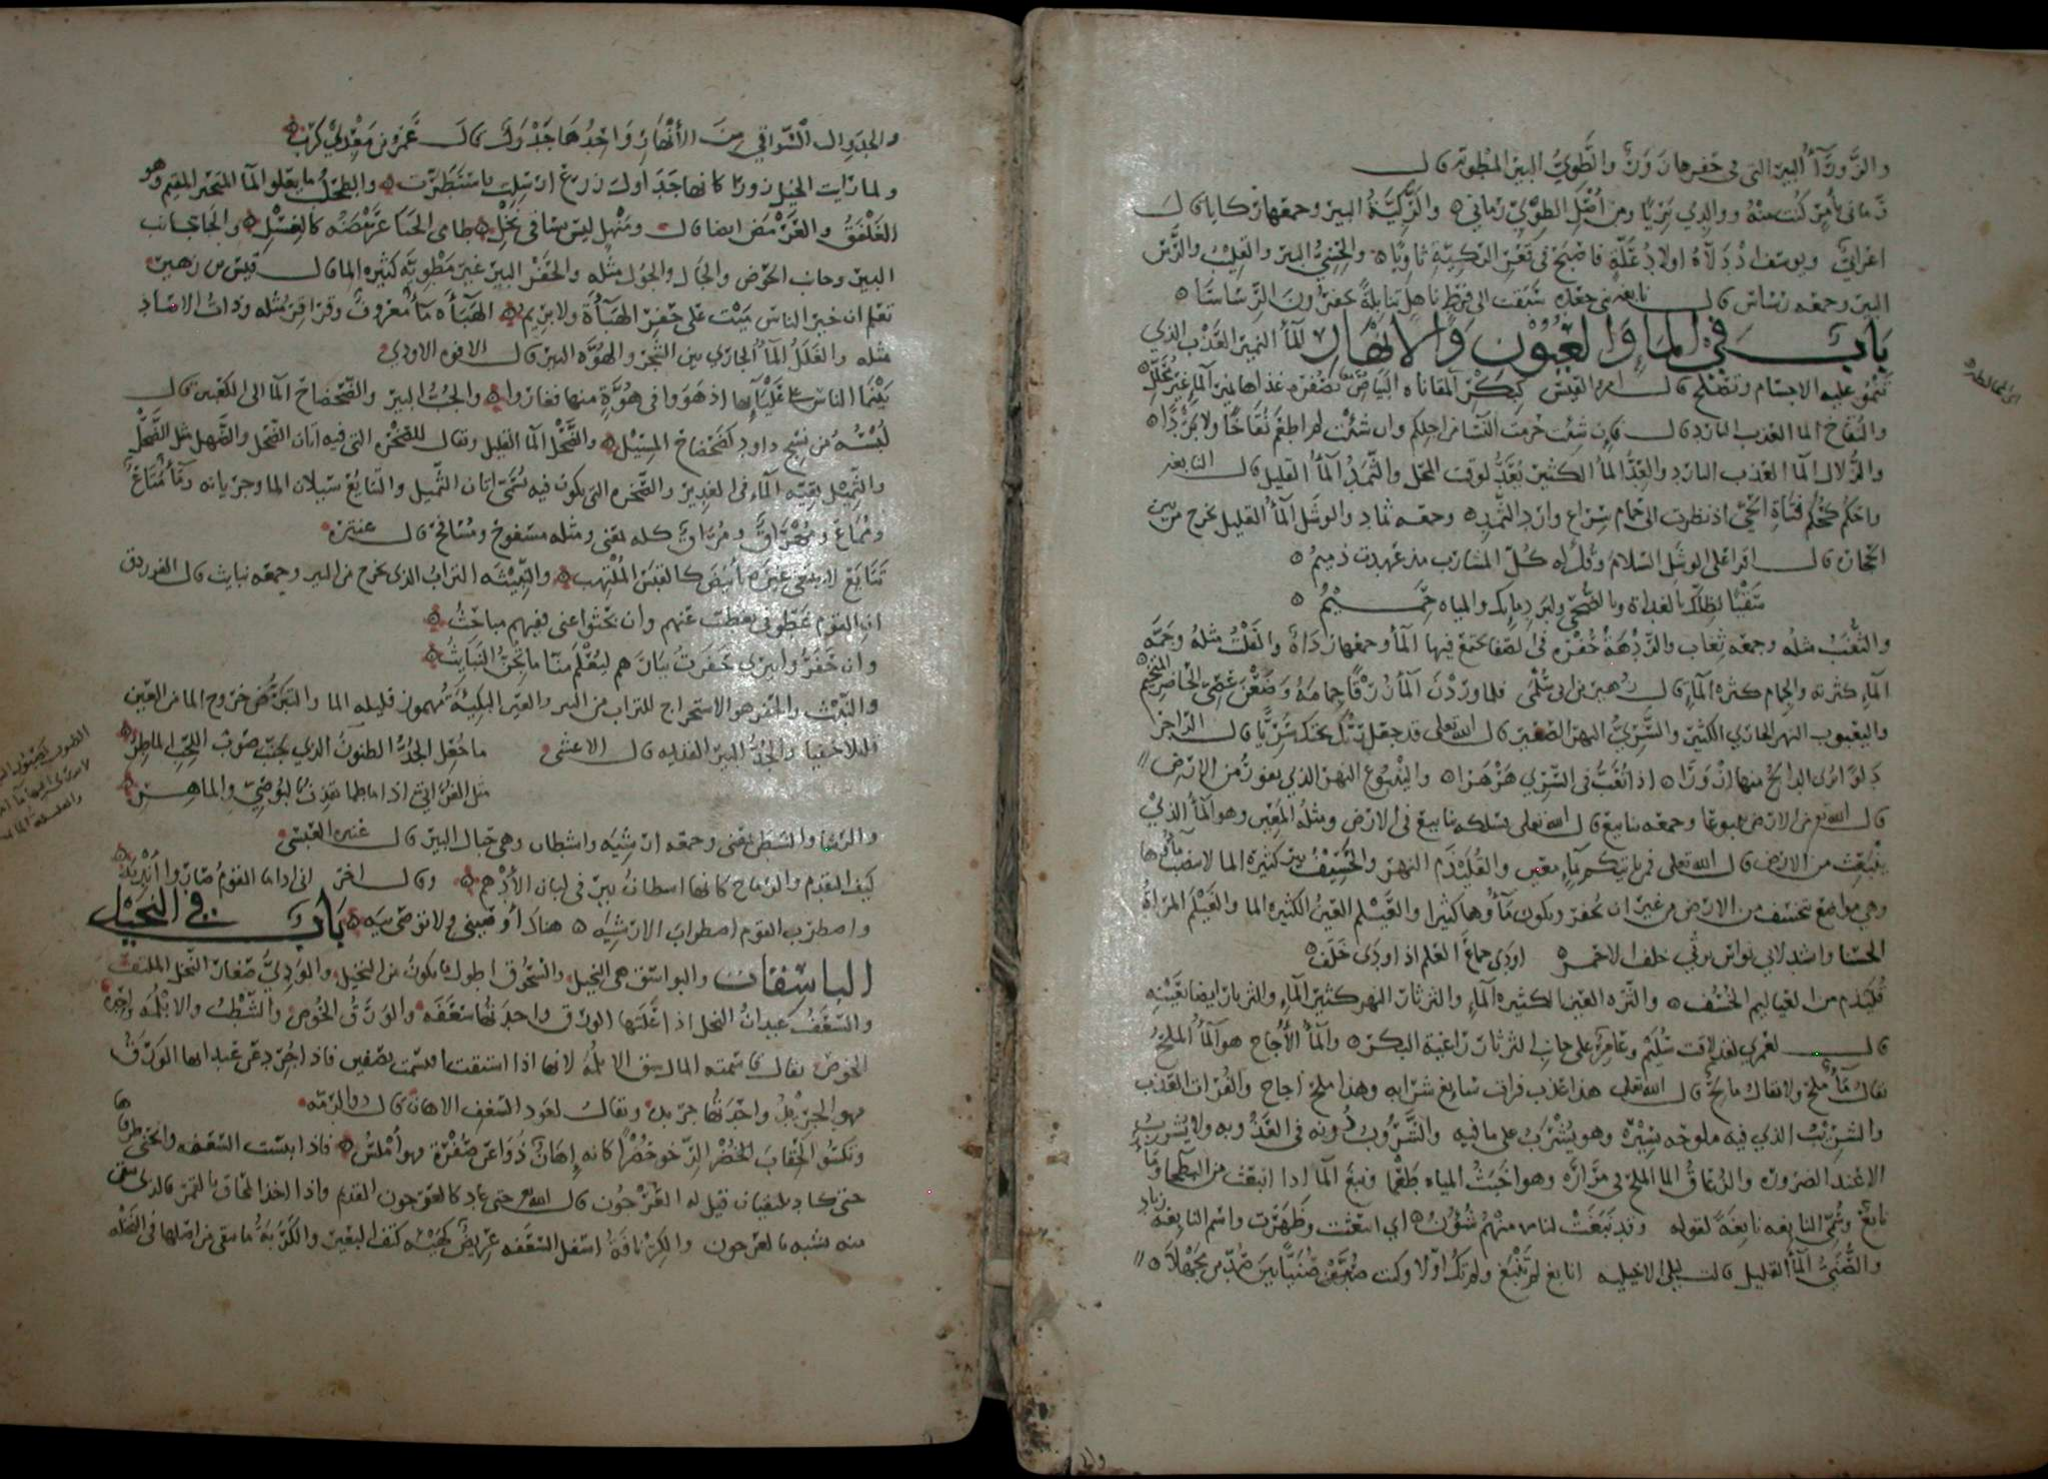 والزوراء البير التي في حفرها زور والطوي البير المطوية قال
رماني بأمر كنت منه ووالدي بريا ومن أجل الطوي رماني والركية البير وجمعها ركايا قال
اعرابي ويوسف اذ دلاه اولاد علة فاصبح في قعر الركية ثاويا والجفر البير والقليب والرس
البير وجمعه رساس قال نابغة بني جعده سبقت الى فرط ناهل تنابلة يحفرون الرساسا
باب في الما والعيون والانهار الما النمير العذب الذي
تنمو عليه الاجسام وتصلح قال امرؤ القيس كبكر المقاناه البياض بصفرة غذاها نمير الماء غير محلل
والنقاخ الما العذب البارد قال فان شئت حرمت النسا سواكم وان شئت لم اطعم نقاخا ولا بردا
والزلال الما العذب البارد والعد الما الكثير يعد لوقت المحل والثمد الما القليل قال النابغه
واحكم كحكم فتاة الحي اذ نظرت الى حمام سراع وارد الثمد وجمعه ثماد والوشل الما القليل يخرج من بين
الحجار قال اقرا على الوشل السلام وقل له كل المشارب مذ عهدت ذميم
سقيا لظلك بالغداة وبالضحى ولبرد مايك والمياه حميم
والثغب مثله وجمعه ثغاب والردهة حفره في الصفا يجتمع فيها الما وجمعها رداه والقلت مثله وجمة
الماء كثرته والجمام كثرة الماء قال زهير بن ابي سلمى فلما وردن الما زرقا جمامه وضعن عصي الحاضر المتخيم
واليعبوب النهر الجاري الكثير والسري النهر الصغير قال الله تعلى قد جعل ربك تحتك سريا قال الراجز
دلوا ترى الدالح منها ازورا اذا تعب في السري هرهرا والينبوع النهر الذي يفور من الارض
قال الله تع من الارض ينبوعا وجمعه ينابيع قال الله تعلى فسلكه ينابيع في الارض ومثله المعين وهو الما الذي
ينبعث من الارض قال الله تعلى فمن ياتيكم بماء معين والقليذم النهر والخسيف بير كثيرة الما لا ينضب ماؤها
وهي مواضع تخسف من الارض من غير ان تحفر ويكون ماؤها كثيرا والعيلم العين الكثيره الما والعيلم المراة
الحسنا وانشد لابي نواس يرثي خلف الاحمر اودى جماع العلم اذ اودى خلف
قليذم من العياليم الخسف والثره العين الكثيره الماء والثرثار النهر كثير الماء والثرثار ايضا بعينه
قال لعمري لقد لاقت سليم وعامر على جانب الثرثار راغية البكر والماء الأجاج هو الما الملح
يقال ما ملح ولا يقال مالح قال الله تعلى هذا عذب فرات سايغ شرابه وهذا ملح اجاج والفرات العذب
والشريب الذي فيه ملوحه يسيرة وهو يشرب على ما فيه والشروب دونه في العذوبه ولا يشرب
الا عند الضروره والزعاق الما الملح في مرارة وهو اخبث المياه طعما ونبغ الما اذا انبعث من البطحا وماء
نابغ وسمي النابغه نابغة لقوله وقد نبغت لنا منهم شؤون اي انبعثت وظهرت واسم النابغه زياد
والصني الما القليل قالت ليلى الاخيليه انابغ لم تنبغ ولم تك اولا وكنت صنيا بين صدين مجهلا
والجداول السواقي من الأنهار واحدها جدول قال عمرو بن معدي كرب
ولما رايت الخيل زورا كانها جداول زرع ارسلت فاسبطرت والطحلب ما يعلو الما المتحير المقيم وهو
الغلفق والعرمض ايضا قال ومنهل ليس بنا في نخل طامي الحنا عرمضه كالغسل والجا جانب
البير وجانب الحوض والجال والجول مثله والجفر البير غير مطوية كثيره الما قال قيس بن زهير
تعلم ان خير الناس ميت على جفر الهباءة ولا يريم الهباءة ماء معروف وقراقر مثله وذات الاصاد
مثله والغلل الما الجاري بين الشجر والهوة البير قال الافوه الاودي
بينما الناس على عليائها اذ هووا في هوة منها فغاروا والجب البير والضحضاح الما الى الكعبين قال
لبسه من نسج داود كضحضاح المسيل والضحل الما القليل ويقال للصخره التي فيه اتان الضحل والضهل مثل الضحل
والثميل بقية الماء في الغدير والصخره التي يكون فيه تسمى اتان الثميل والتايع سيلان الما وجريانه
ومماع ومهراق ومراق كله بمعنى ومثله مسفوح ومسافح قال عنتره
تتايع لا يبتغي غيره بابيض كالقبس الملتهب والنبيثه التراب الذي يخرج من البير وجمعه نبايث قال الفرزدق
ان القوم غطوني تغطيت عنهم وان بحثوا عني ففيهم مباحث
وان حفروا بيري حفرت بيارهم ليعلم منا ما تجن النبايث
والنبث والحفر هو الاستخراج للتراب من البير والعين البكية مهموز قليله الما والتبرض خروج الما من العين
قليلا خفيا والجد البير القديمه قال الاعشى ما جعل الجد الظنون الذي يجنب صوب اللجب الماطر
مثل الفراتي اذا ما طما يقذف بالبوصي والماهر
والرشا والشطن بمعنى وجمعه ارشية واشطان وهي حبال البير قال عنتره العبسي
كيف التقدم والرماح كانها اشطان بير في لبان الأدهم وقال اخر اني اذا ما القوم صاروا انجية
واضطرب القوم اضطراب الارشيه هناك أوصيني ولا توصي بيه باب في النخيل
الباسقات والبواسق هي النخيل والسحوق اطول ما يكون من النخيل والودي صغار النخل الملتف
والسعف عيدان النخل اذا عليها الورق واحدتها سعفه والورق الخوص والشطب والابلمه واحدة
الخوص يقال قاسمته المال شق الابلمه لانها اذا انشقت انقسمت بنصفين فاذا جرد عن عيدانها الورق
فهو الجريد واحدتها جريده ويقال لعود السعف الاهان قال ذو الرمه
وتكسو كانه إهان ذوا عن صفرة فهو أملس فاذا يبست السعفه وانحنى طرفاها
حتى كاد يلتقيان قيل له العرجون قال الله تع حتى عاد كالعرجون القديم
منه تشبه بالعرجون والكرنافة اسفل السعفه عريض كهيئه كتف البعير والكربة ما يبقى من اصلها في النخله